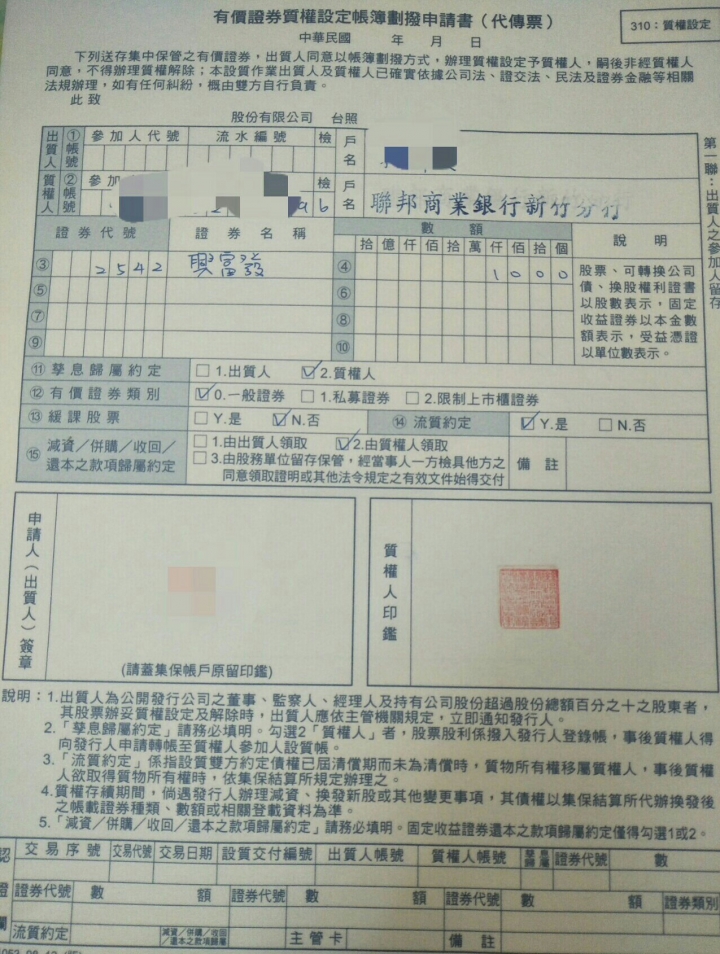 有價證券質權設定帳簿劃撥申請書(代傳票)
310:質權設定
中華民國 年 月 日
下列送存集中保管之有價證券,出質人同意以帳簿劃撥方式,辦理質權設定予質權人,嗣後非經質權人
同意,不得辦理質權解除;本設質作業出質人及質權人已確實依據公司法、證交法、民法及證券金融等相關
法規辦理,如有任何糾紛,概由雙方自行負責。
此致
股份有限公司 台照
出質人 ①帳號 參加人代號 流水編號 檢 戶名
質權人 ②帳號 參加 檢 戶名 聯邦商業銀行新竹分行
9 6
第一聯:出質人之參加人留存
證券代號 證券名稱 數額 說明
拾 億 仟 佰 拾 萬 仟 佰 拾 個
③ 2542 興富發 ④ 1000
⑤ ⑥
⑦ ⑧
⑨ ⑩
股票、可轉換公司
債、換股權利證書
以股數表示,固定
收益證券以本金數
額表示,受益憑證
以單位數表示。
⑪ 孳息歸屬約定 □1.出質人 ☑2.質權人
⑫ 有價證券類別 ☑0.一般證券 □1.私募證券 □2.限制上市櫃證券
⑬ 緩課股票 □Y.是 ☑N.否 ⑭ 流質約定 ☑Y.是 □N.否
⑮ 減資/併購/收回/
還本之款項歸屬約定
□1.由出質人領取 ☑2.由質權人領取
□3.由股務單位留存保管,經當事人一方檢具他方之
同意領取證明或其他法令規定之有效文件始得交付
備註
申請人(出質人)簽章
(請蓋集保帳戶原留印鑑)
質權人印鑑
說明:1.出質人為公開發行公司之董事、監察人、經理人及持有公司股份超過股份總額百分之十之股東者,
其股票辦妥質權設定及解除時,出質人應依主管機關規定,立即通知發行人。
2.「孳息歸屬約定」請務必填明。勾選2「質權人」者,股票股利係撥入發行人登錄帳,事後質權人得
向發行人申請轉帳至質權人參加人設質帳。
3.「流質約定」係指設質雙方約定債權已屆清償期而未為清償時,質物所有權移屬質權人,事後質權
人欲取得質物所有權時,依集保結算所規定辦理之。
4.質權存續期間,倘遇發行人辦理減資、換發新股或其他變更事項,其債權以集保結算所代辦換發後
之帳載證券種類、數額或相關登載資料為準。
5.「減資/併購/收回/還本之款項歸屬約定」請務必填明。固定收益證券還本之款項歸屬約定僅得勾選1或2。
認證欄
交易序號 交易代號 交易日期 設質交付編號 出質人帳號 質權人帳號 孳息歸屬 證券代號 數
證券代號 數額 證券代號 數額 證券代號 數額 證券類別
流質約定 減資/併購/收回/還本之款項歸屬 主管卡 備註